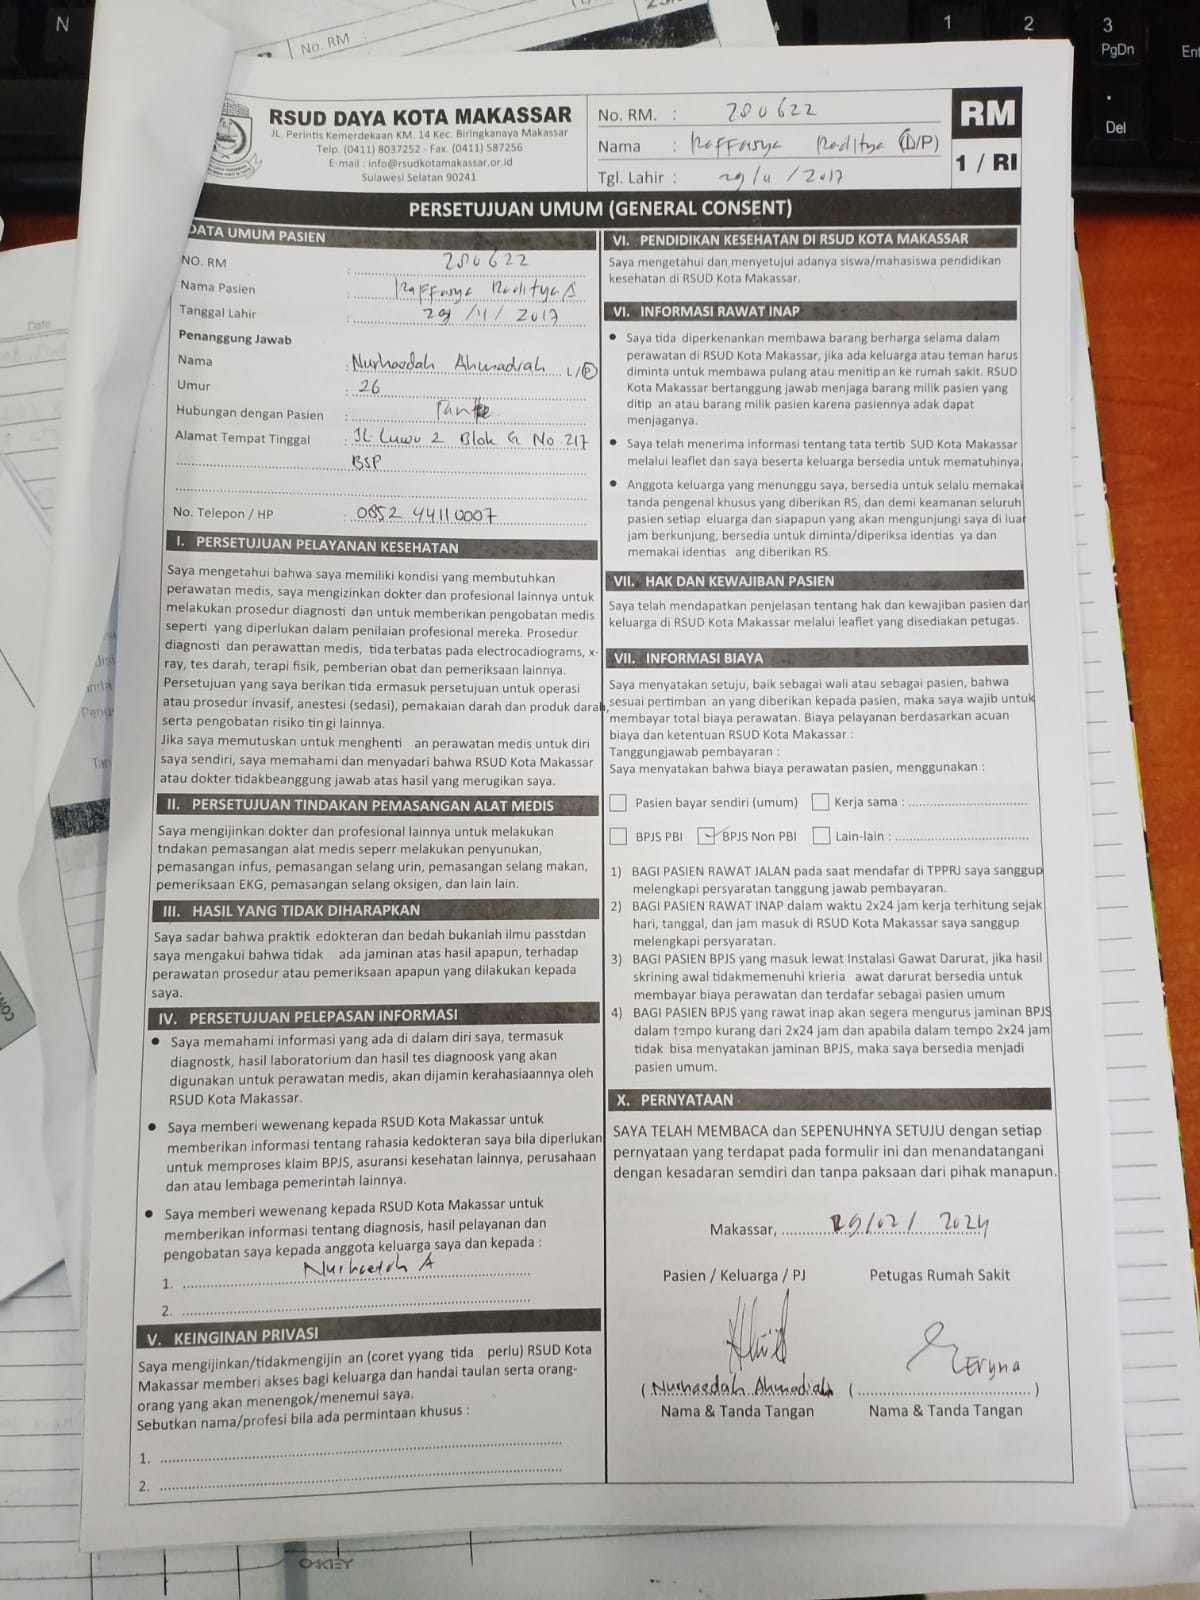 No. RM :
RSUD DAYA KOTA MAKASSAR
JL. Perintis Kemerdekaan KM. 14 Kec. Biringkanaya Makassar
Telp. (0411) 8037252 - Fax. (0411) 587256
E-mail : info@rsudkotamakassar.or.id
Sulawesi Selatan 90241
No. RM. : 280622
Nama : Raffasya Raditya (L/P)
Tgl. Lahir : 29/11/2017
RM
1 / RI
PERSETUJUAN UMUM (GENERAL CONSENT)
DATA UMUM PASIEN
NO. RM : 280622
Nama Pasien : Raffasya Raditya A
Tanggal Lahir : 29/11/2017
Penanggung Jawab
Nama : Nurhaedah Ahmadiah L/P
Umur : 26
Hubungan dengan Pasien : Tante
Alamat Tempat Tinggal : Jl. Luwu 2 Blok G No.217
BSP
No. Telepon / HP : 0852 4411 0007
I. PERSETUJUAN PELAYANAN KESEHATAN
Saya mengetahui bahwa saya memiliki kondisi yang membutuhkan
perawatan medis, saya mengizinkan dokter dan profesional lainnya untuk
melakukan prosedur diagnosti dan untuk memberikan pengobatan medis
seperti yang diperlukan dalam penilaian profesional mereka. Prosedur
diagnosti dan perawattan medis, tida terbatas pada electrocadiograms, x-
ray, tes darah, terapi fisik, pemberian obat dan pemeriksaan lainnya.
Persetujuan yang saya berikan tida ermasuk persetujuan untuk operasi
atau prosedur invasif, anestesi (sedasi), pemakaian darah dan produk darah,
serta pengobatan risiko tin gi lainnya.
Jika saya memutuskan untuk menghenti an perawatan medis untuk diri
saya sendiri, saya memahami dan menyadari bahwa RSUD Kota Makassar
atau dokter tidakbeanggung jawab atas hasil yang merugikan saya.
II. PERSETUJUAN TINDAKAN PEMASANGAN ALAT MEDIS
Saya mengijinkan dokter dan profesional lainnya untuk melakukan
tndakan pemasangan alat medis seperr melakukan penyunukan,
pemasangan infus, pemasangan selang urin, pemasangan selang makan,
pemeriksaan EKG, pemasangan selang oksigen, dan lain lain.
III. HASIL YANG TIDAK DIHARAPKAN
Saya sadar bahwa praktik edokteran dan bedah bukanlah ilmu passtdan
saya mengakui bahwa tidak ada jaminan atas hasil apapun, terhadap
perawatan prosedur atau pemeriksaan apapun yang dilakukan kepada
saya.
IV. PERSETUJUAN PELEPASAN INFORMASI
• Saya memahami informasi yang ada di dalam diri saya, termasuk
diagnostk, hasil laboratorium dan hasil tes diagnoosk yang akan
digunakan untuk perawatan medis, akan dijamin kerahasiaannya oleh
RSUD Kota Makassar.
• Saya memberi wewenang kepada RSUD Kota Makassar untuk
memberikan informasi tentang rahasia kedokteran saya bila diperlukan
untuk memproses klaim BPJS, asuransi kesehatan lainnya, perusahaan
dan atau lembaga pemerintah lainnya.
• Saya memberi wewenang kepada RSUD Kota Makassar untuk
memberikan informasi tentang diagnosis, hasil pelayanan dan
pengobatan saya kepada anggota keluarga saya dan kepada :
1. Nurhaedah A
2.
V. KEINGINAN PRIVASI
Saya mengijinkan/tidakmengijin an (coret yyang tida perlu) RSUD Kota
Makassar memberi akses bagi keluarga dan handai taulan serta orang-
orang yang akan menengok/menemui saya.
Sebutkan nama/profesi bila ada permintaan khusus :
1.
2.
VI. PENDIDIKAN KESEHATAN DI RSUD KOTA MAKASSAR
Saya mengetahui dan menyetujui adanya siswa/mahasiswa pendidikan
kesehatan di RSUD Kota Makassar.
VI. INFORMASI RAWAT INAP
• Saya tida diperkenankan membawa barang berharga selama dalam
perawatan di RSUD Kota Makassar, jika ada keluarga atau teman harus
diminta untuk membawa pulang atau menitip an ke rumah sakit. RSUD
Kota Makassar bertanggung jawab menjaga barang milik pasien yang
ditip an atau barang milik pasien karena pasiennya adak dapat
menjaganya.
• Saya telah menerima informasi tentang tata tertib SUD Kota Makassar
melalui leaflet dan saya beserta keluarga bersedia untuk mematuhinya.
• Anggota keluarga yang menunggu saya, bersedia untuk selalu memakai
tanda pengenal khusus yang diberikan RS, dan demi keamanan seluruh
pasien setiap eluarga dan siapapun yang akan mengunjungi saya di luar
jam berkunjung, bersedia untuk diminta/diperiksa identias ya dan
memakai identias ang diberikan RS.
VII. HAK DAN KEWAJIBAN PASIEN
Saya telah mendapatkan penjelasan tentang hak dan kewajiban pasien dan
keluarga di RSUD Kota Makassar melalui leaflet yang disediakan petugas.
VII. INFORMASI BIAYA
Saya menyatakan setuju, baik sebagai wali atau sebagai pasien, bahwa
sesuai pertimban an yang diberikan kepada pasien, maka saya wajib untuk
membayar total biaya perawatan. Biaya pelayanan berdasarkan acuan
biaya dan ketentuan RSUD Kota Makassar :
Tanggungjawab pembayaran :
Saya menyatakan bahwa biaya perawatan pasien, menggunakan :
Pasien bayar sendiri (umum) Kerja sama :
BPJS PBI BPJS Non PBI Lain-lain :
1) BAGI PASIEN RAWAT JALAN pada saat mendafar di TPPRJ saya sanggup
melengkapi persyaratan tanggung jawab pembayaran.
2) BAGI PASIEN RAWAT INAP dalam waktu 2x24 jam kerja terhitung sejak
hari, tanggal, dan jam masuk di RSUD Kota Makassar saya sanggup
melengkapi persyaratan.
3) BAGI PASIEN BPJS yang masuk lewat Instalasi Gawat Darurat, jika hasil
skrining awal tidakmemenuhi krieria awat darurat bersedia untuk
membayar biaya perawatan dan terdafar sebagai pasien umum
4) BAGI PASIEN BPJS yang rawat inap akan segera mengurus jaminan BPJS
dalam tempo kurang dari 2x24 jam dan apabila dalam tempo 2x24 jam
tidak bisa menyatakan jaminan BPJS, maka saya bersedia menjadi
pasien umum.
X. PERNYATAAN
SAYA TELAH MEMBACA dan SEPENUHNYA SETUJU dengan setiap
pernyataan yang terdapat pada formulir ini dan menandatangani
dengan kesadaran semdiri dan tanpa paksaan dari pihak manapun.
Makassar, 29/02/2024
Pasien / Keluarga / PJ Petugas Rumah Sakit
Eryna
( Nurhaedah Ahmadiah ) ( )
Nama & Tanda Tangan Nama & Tanda Tangan
N
1
2
3
PgDn
.
Del
Date
OKEY